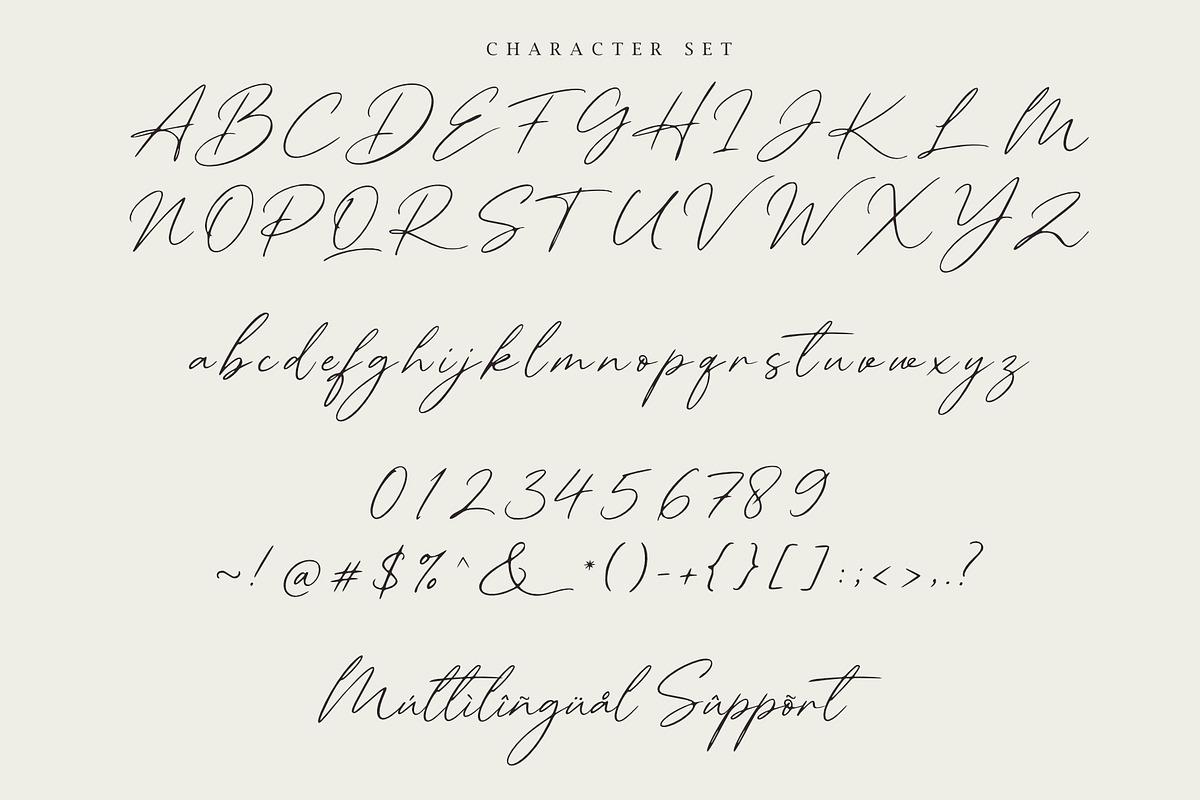 CHARACTER SET
A B C D E F G H I J K L M
N O P Q R S T U V W X Y Z
a b c d e f g h i j k l m n o p q r s t u v w x y z
0 1 2 3 4 5 6 7 8 9
~ ! @ # $ % ^ & * ( ) - + { } [ ] : ; < > , . ?
Múltìlîñgüål Sûppõrt